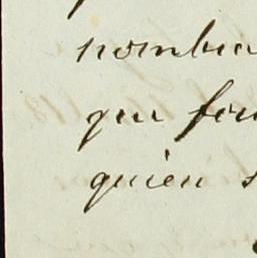 nombra
que fou
quien s